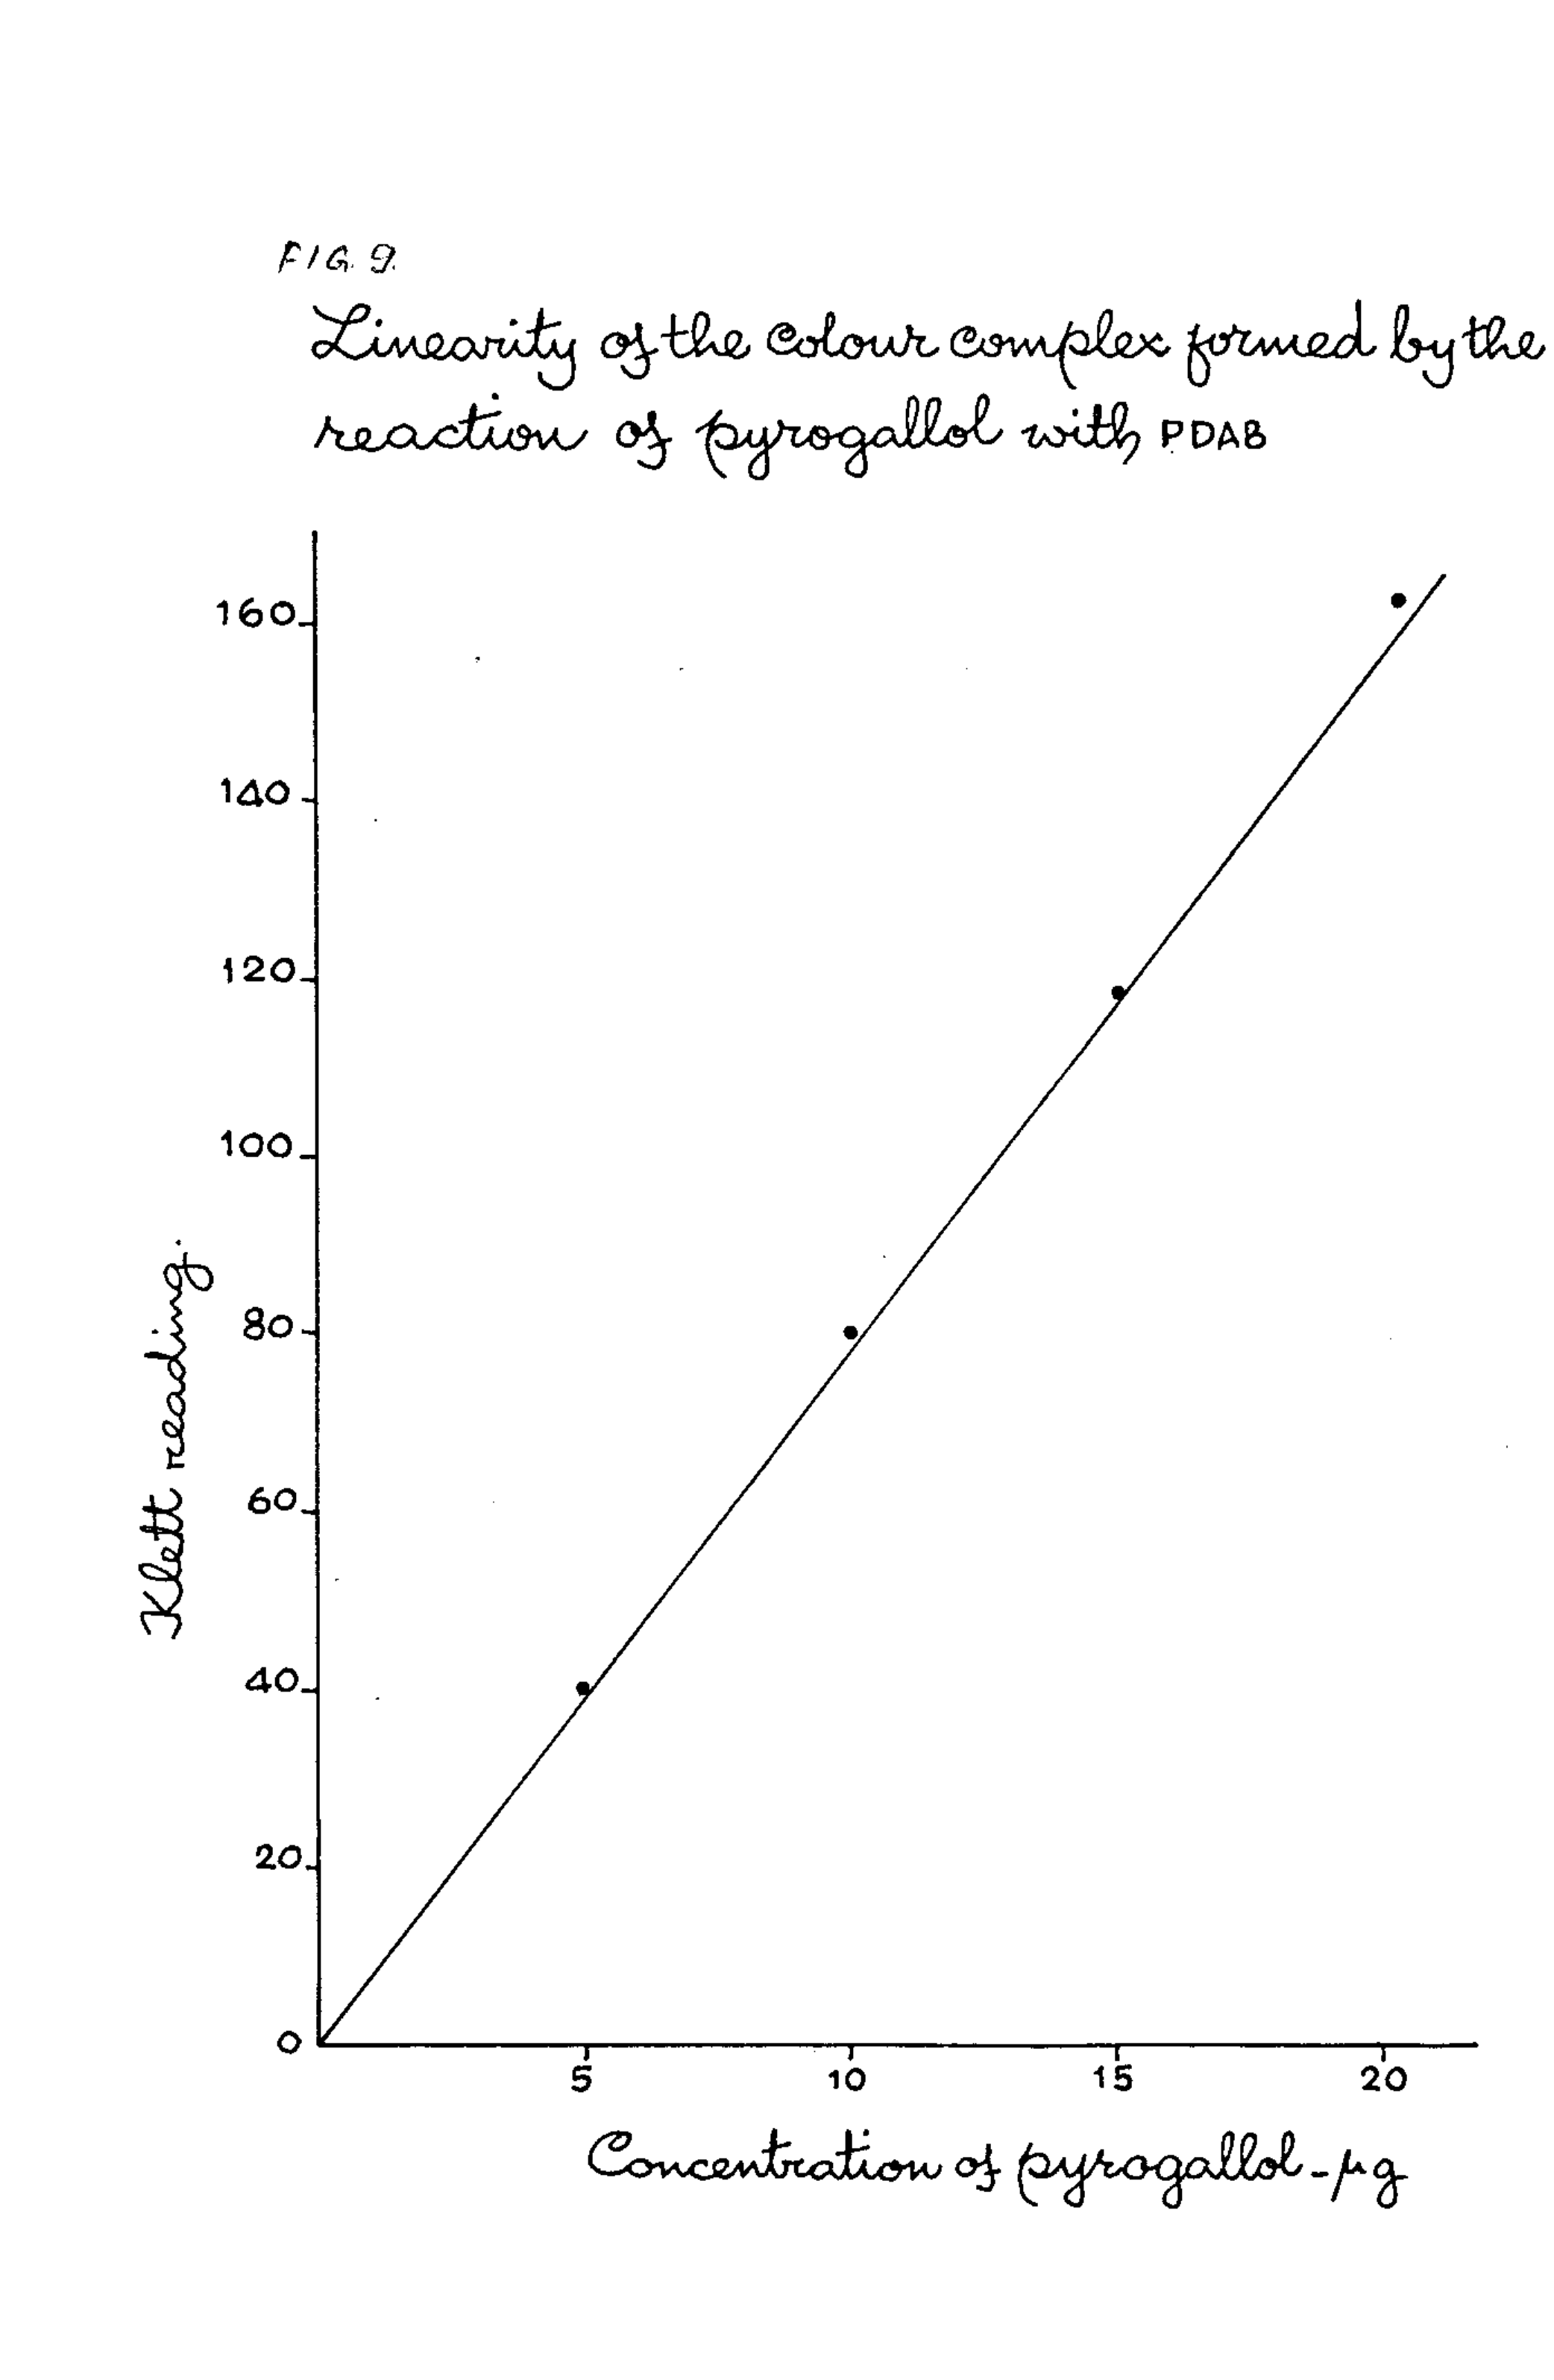 FIG. 9.
Linearity of the colour complex formed by the
reaction of pyrogallol with PDAB
160
140
120
100
80
60
40
20
0
Klett reading.
5 10 15 20
Concentration of pyrogallol - µg